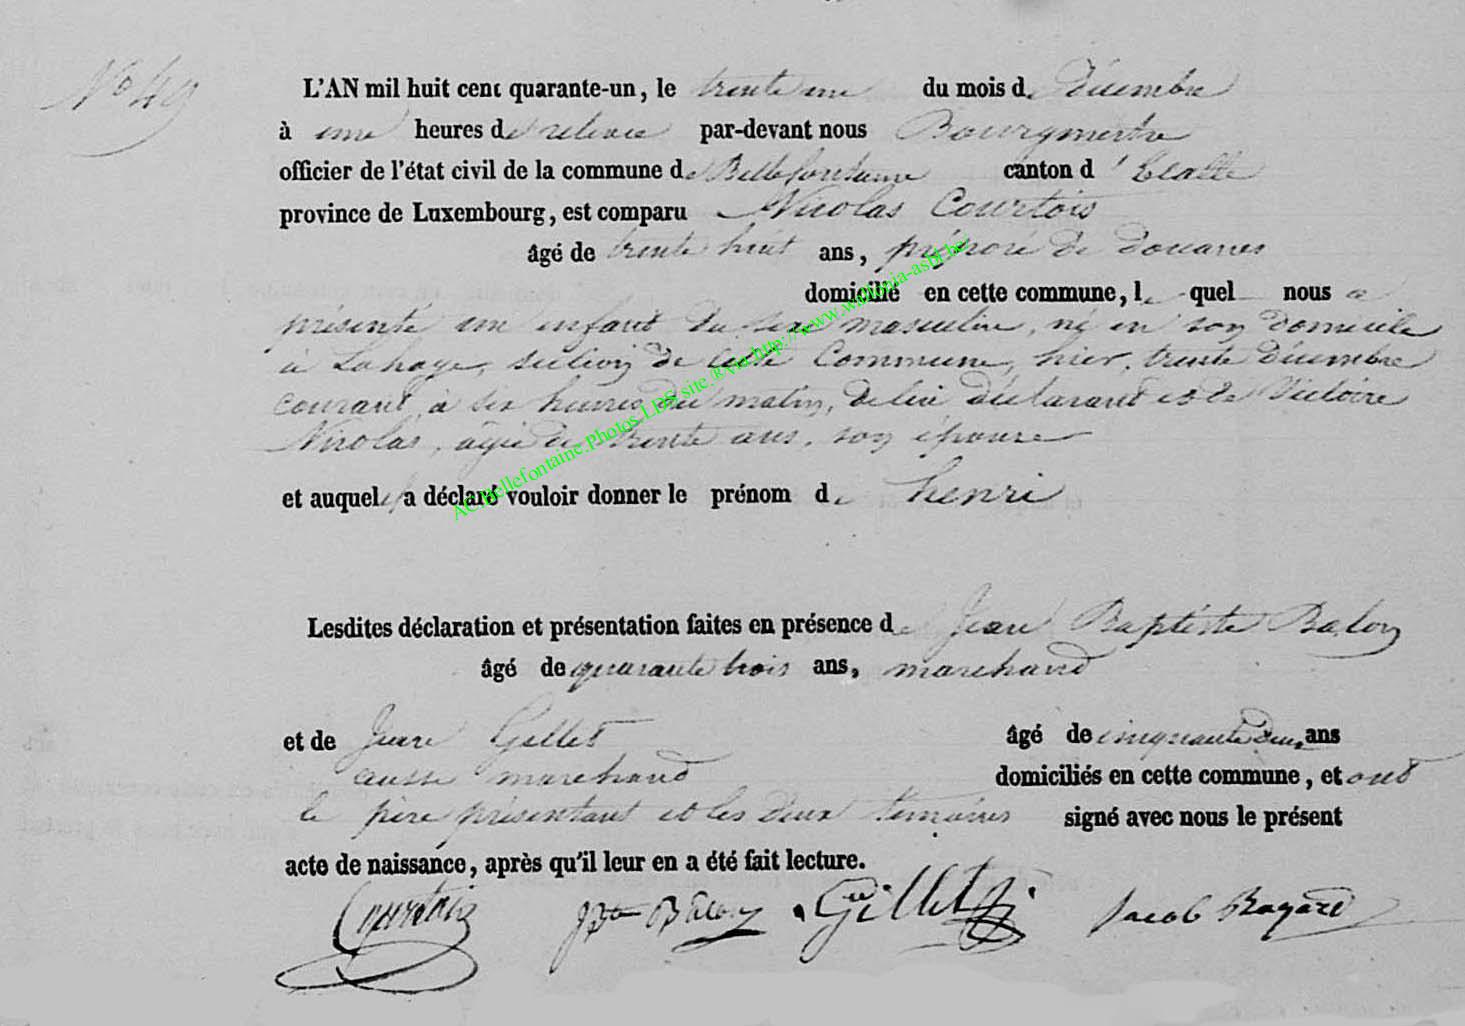 No 49
L'AN mil huit cent quarante-un, le trente une du mois de décembre
à une heures de relevée par-devant nous Bourgmestre
officier de l'état civil de la commune de Bellefontaine canton d'Etalle
province de Luxembourg, est comparu Nicolas Courtois
âgé de trente huit ans, préposé de douanes
domicilié en cette commune, le quel nous a
présenté un enfant du sexe masculin, né en son domicile
à Lahage, section de cette Commune, hier, trente décembre
courant, a six heures du matin, de lui déclarant et de Victoire
Nicolas, agée de trente ans, son épouse
et auquel il a déclaré vouloir donner le prénom de henri
Lesdites déclaration et présentation faites en présence de Jean Baptiste Balon
âgé de quarante trois ans, marchand
et de Jean Gillet âgé de cinquante deux ans
aussi marchand domiciliés en cette commune, et ont
le père présentant et les deux témoins signé avec nous le présent
acte de naissance, après qu'il leur en a été fait lecture.
Courtois JBte Balon Gillet Jacob Bayard
AC.Bellefontaine.Photos LDS site ® via http://www.wallonia-asbl.be/